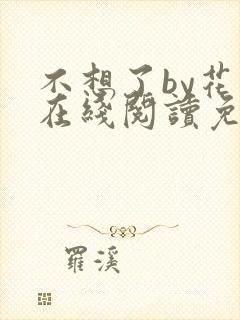 不想了by花
在綫閱讀免
羅溪